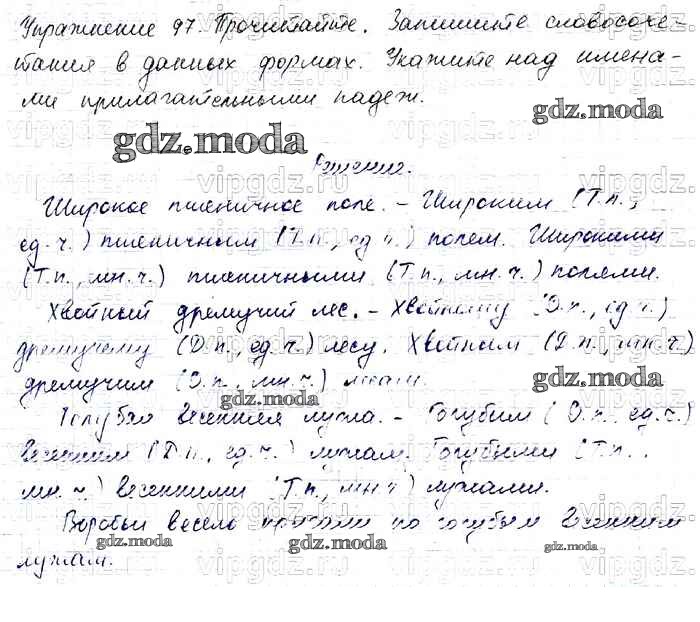 Упражнение 97. Прочитайте. Запишите словосоче-
тания в данных формах. Укажите над имена-
ми прилагательными падеж.
gdz.moda
gdz.moda
Решение.
Широкое пшеничное поле. - Широким (Т.п.,
ед.ч.) пшеничным (Т.п., ед.ч.) полем. Широкими
(Т.п., мн.ч.) пшеничными (Т.п., мн.ч.) полями.
Хвойный дремучий лес. - Хвойному (Д.п., ед.ч.)
дремучему (Д.п., ед.ч.) лесу. Хвойным (Д.п., мн.ч.)
дремучим (Д.п., мн.ч.) лесам.
gdz.moda
gdz.moda
Голубая весенняя лужа. - Голубым (Д.п., ед.ч.)
весенним (Д.п., ед.ч.) лужам. Голубыми (Т.п.,
мн.ч.) весенними (Т.п., мн.ч) лужами.
Воробьи весело прыгали по голубым весенним
лужам.
gdz.moda
gdz.moda
gdz.moda
gdz.moda
vipgdz.ru